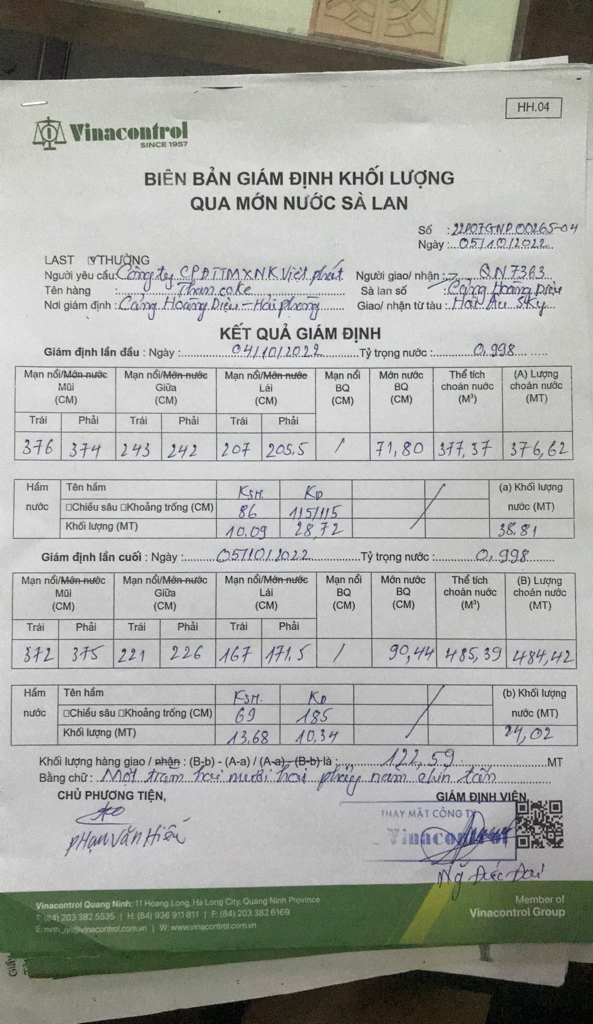 HH.04
Vinacontrol
SINCE 1957
BIÊN BẢN GIÁM ĐỊNH KHỐI LƯỢNG
QUA MỚN NƯỚC SÀ LAN
Số : 22P07GNP00265-04
Ngày : 05/10/2022
LAST THƯỜNG
Người yêu cầu: Công ty CPĐTTMXNK Việt phát Người giao/ nhận: QN7363
Tên hàng : Than coke Sà lan số : Cảng Hoàng Diệu
Nơi giám định : Cảng Hoàng Diệu - Hải phòng Giao/ nhận từ tàu : Hai Au Sky
KẾT QUẢ GIÁM ĐỊNH
Giám định lần đầu : Ngày : 04/10/2022 Tỷ trọng nước : 0,998
Mạn nổi/Mớn nước Mũi (CM) Mạn nổi/Mớn nước Giữa (CM) Mạn nổi/Mớn nước Lái (CM) Mạn nổi BQ (CM) Món nước BQ (CM) Thể tích choán nước (M³) (A) Lượng choán nước (MT)
Trái Phải Trái Phải Trái Phải
376 374 243 242 207 205,5 / 71,80 377,37 376,62
Hầm nước Tên hầm KSM. KĐ (a) Khối lượng nước (MT)
□Chiều sâu □Khoảng trống (CM) 86 115/115
Khối lượng (MT) 10,09 28,72 38,81
Giám định lần cuối : Ngày : 05/10/2022 Tỷ trọng nước : 0,998
Mạn nổi/Mớn nước Mũi (CM) Mạn nổi/Mớn nước Giữa (CM) Mạn nổi/Mớn nước Lái (CM) Mạn nổi BQ (CM) Mớn nước BQ (CM) Thể tích choán nước (M³) (B) Lượng choán nước (MT)
Trái Phải Trái Phải Trái Phải
372 375 221 226 167 171,5 / 90,44 485,39 484,42
Hầm nước Tên hầm KSM. KĐ (b) Khối lượng nước (MT)
□Chiều sâu □Khoảng trống (CM) 69 185
Khối lượng (MT) 13,68 10,34 24,02
Khối lượng hàng giao / nhận : (B-b) - (A-a) / (A-a) - (B-b) là : 122,59 MT
Bằng chữ : Một trăm hai mươi hai phẩy năm chín tấn
CHỦ PHƯƠNG TIỆN, GIÁM ĐỊNH VIÊN,
THAY MẶT CÔNG TY
Vinacontrol
Phạm Văn Hiếu
Ng Đức Đại
Vinacontrol Quang Ninh: 11 Hoang Long, Ha Long City, Quang Ninh Province
T: (84) 203 382 5535 | H: (84) 936 911 811 | F: (84) 203 382 6169
W: www.vinacontrol.com.vn
Member of
Vinacontrol Group